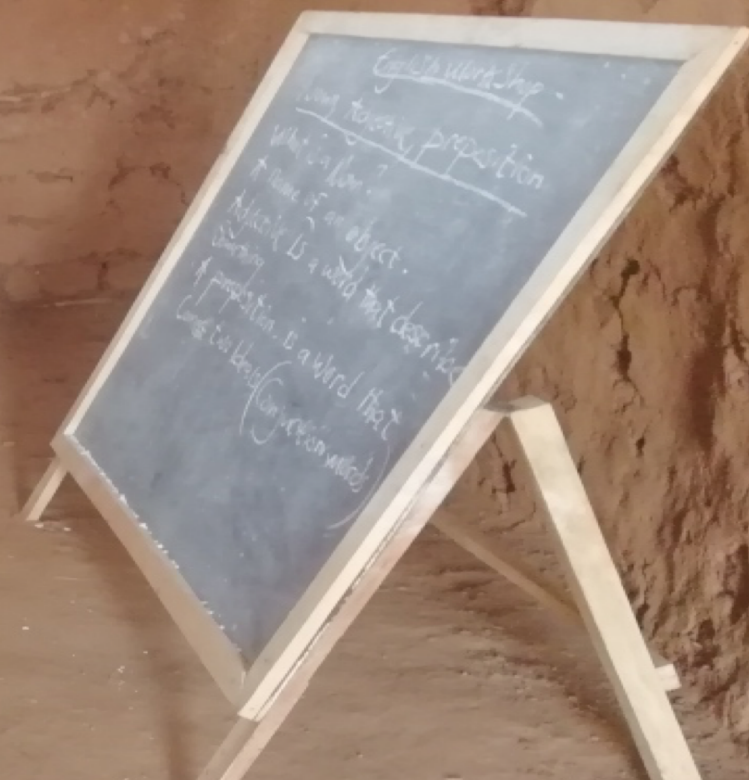 English WorkShop -
preposition
What is a Noun?
A name of an object.
Adjective is a word that describe
A preposition. is a word that
two Ideas (Conjunction words)